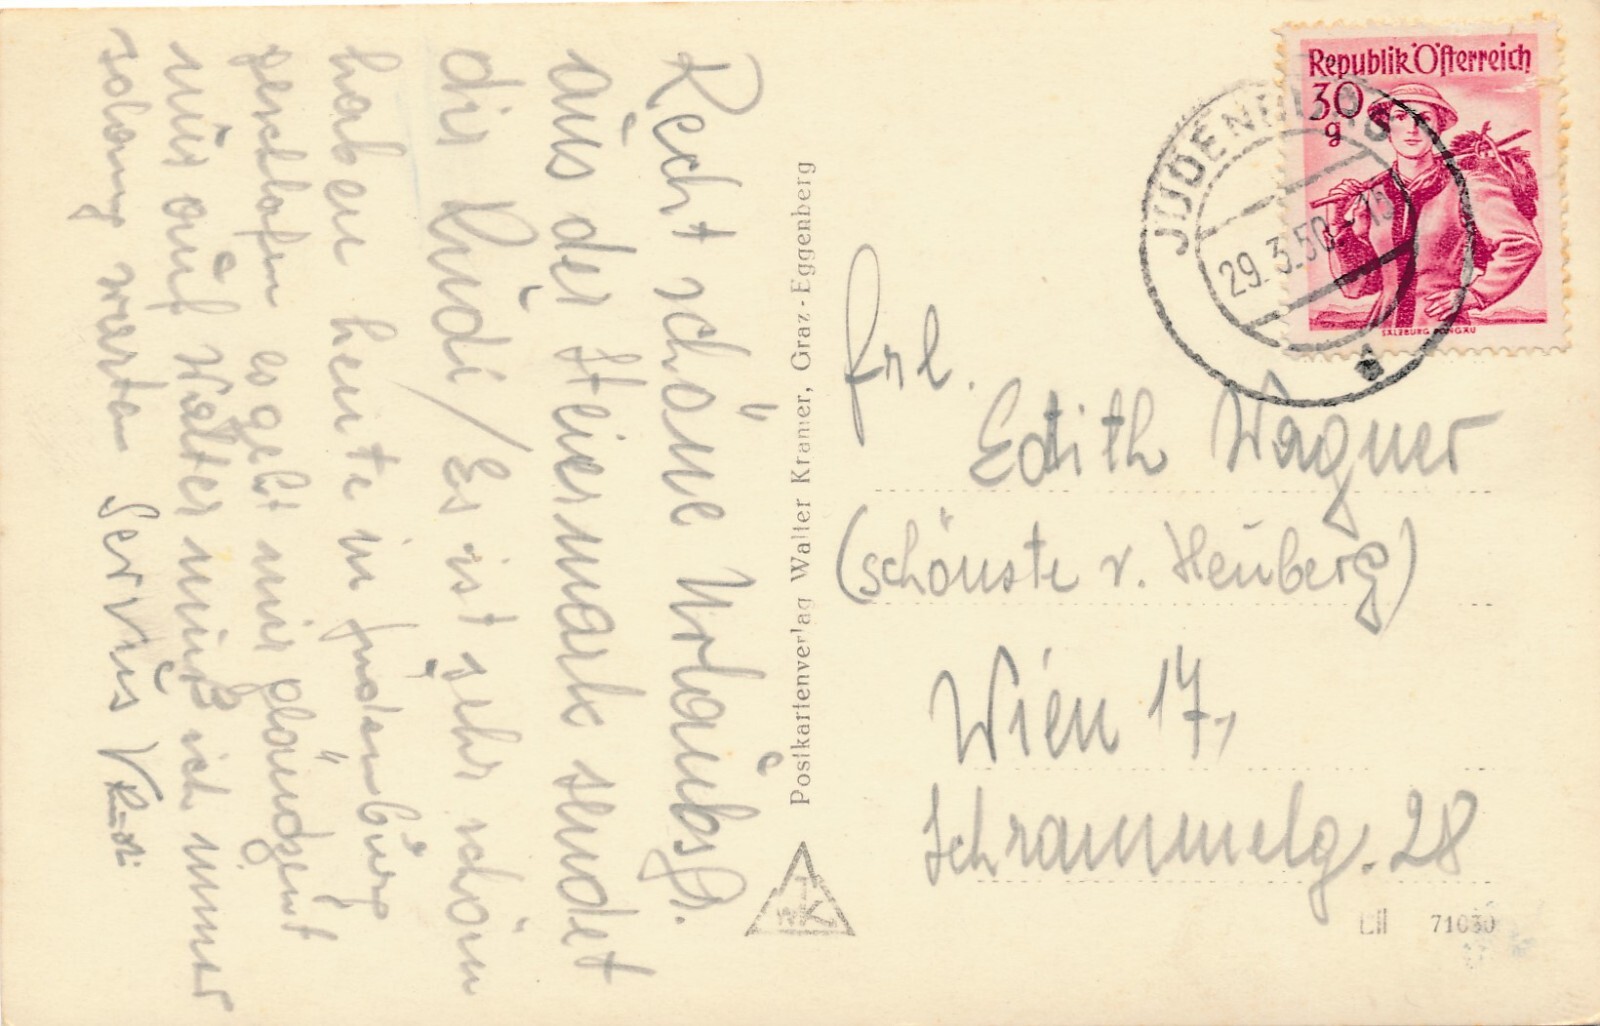 Recht schöne Urlaubsg.
aus der Steiermark sendet
dir Rudi / Es ist sehr schön
haben heute in Judenburg
geschlafen es geht mir glänzend
nur auf Walter muß ich immer
solang warten Servus
Rudi
Postkartenverlag Walter Kramer, Graz-Eggenberg
WK
Republik Österreich
30
g
SALZBURG PONGAU
JUDENBURG
29.3.50
Frl.
Edith Wagner
(schönste v. Heuberg)
Wien 17,
Schrammelg. 28
71030